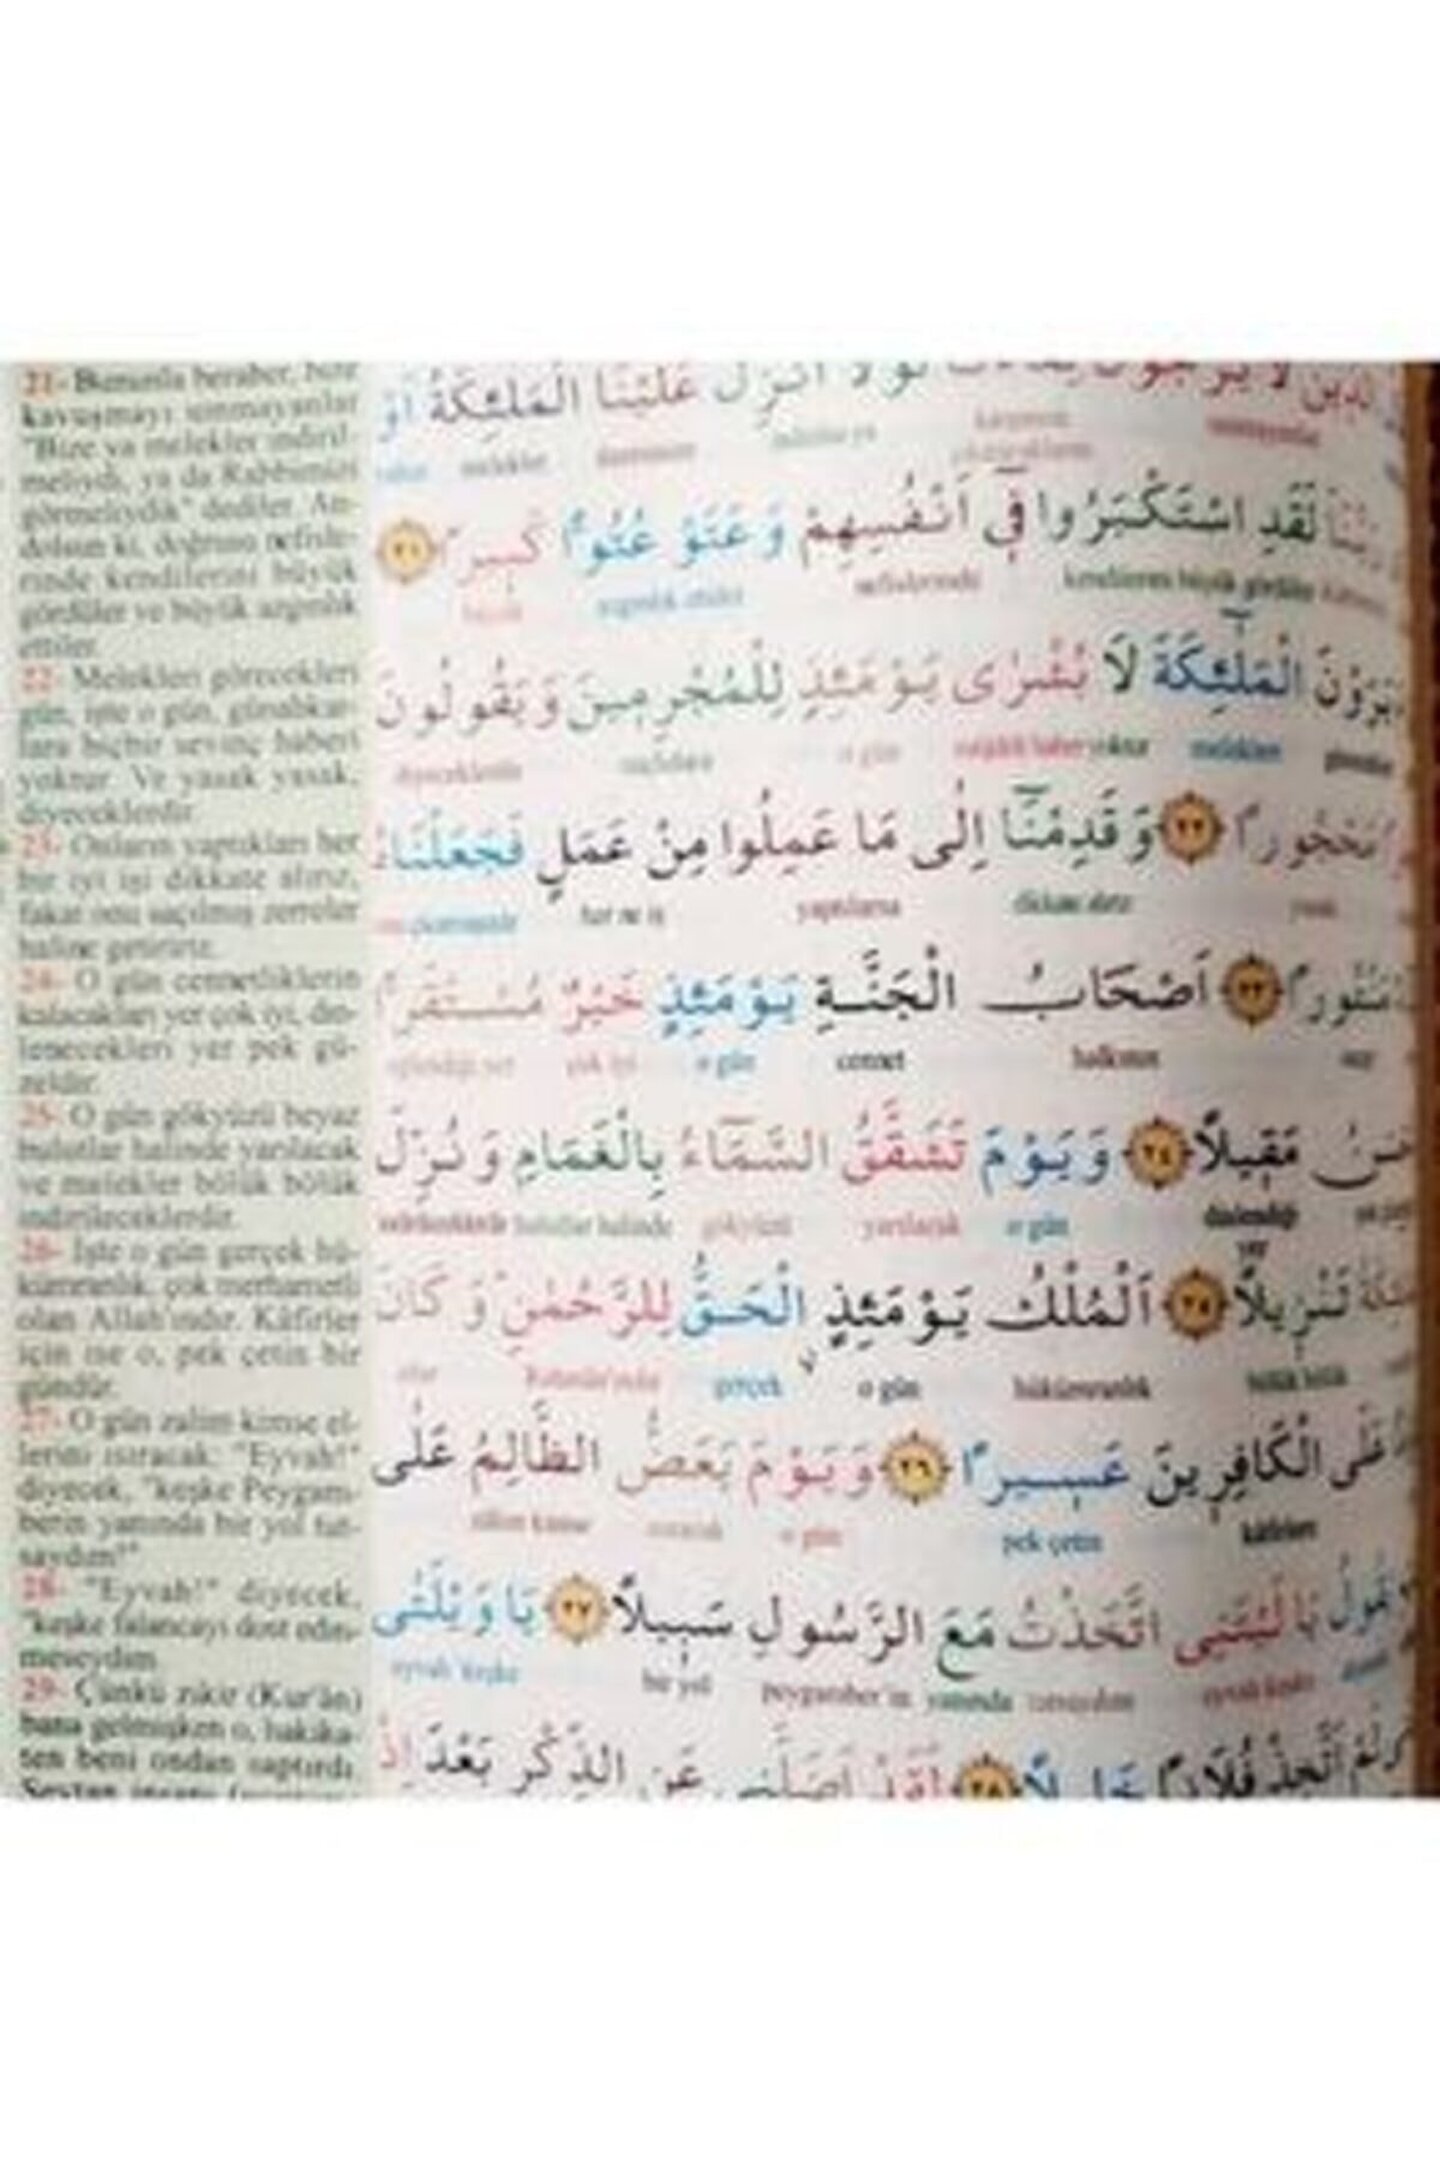 21- Bununla beraber, bize
kavuşmayı ummayanlar
"Bize ya melekler indiril-
meliydi, ya da Rabbimizi
görmeliydik" dediler. An-
dolsun ki, doğrusu nefisle-
rinde kendilerini büyük
gördüler ve büyük azgınlık
ettiler.
22- Melekleri görecekleri
gün, işte o gün, günahkâr-
lara hiçbir sevinç haberi
yoktur. Ve yasak yasak,
diyeceklerdir.
23- Onların yaptıkları her
bir iyi işi dikkate alırız,
fakat onu saçılmış zerreler
haline getiririz.
24- O gün cennetliklerin
kalacakları yer çok iyi, din-
lenecekleri yer pek gü-
zeldir.
25- O gün gökyüzü beyaz
bulutlar halinde yarılacak
ve melekler bölük bölük
indirileceklerdir.
26- İşte o gün gerçek hü-
kümranlık çok merhametli
olan Allah'ındır. Kâfirler
için ise o, pek çetin bir
gündür.
27- O gün zalim kimse el-
lerini ısıracak: "Eyvah!"
diyecek, "keşke Peygam-
berin yanında bir yol tut-
saydım!"
28- "Eyvah!" diyecek,
"keşke falancayı dost edin-
meseydim.
29- Çünkü zikir (Kur'ân)
bana gelmişken o, hakika-
ten beni ondan saptırdı.
Şeytan insanı
عَلَيْنَا الْمَلٰٓئِكَةُ اَوْ
melekler
لَقَدِ اسْتَكْبَرُوا فٖٓي اَنْفُسِهِمْ وَعَتَوْ عُتُوًّا كَبٖيرًا ﴿٢١﴾
kendilerini büyük gördüler nefislerinde azgınlık ettiler büyük
يَرَوْنَ الْمَلٰٓئِكَةَ لَا بُشْرٰى يَوْمَئِذٍ لِلْمُجْرِمٖينَ وَيَقُولُونَ
melekleri yoktur o gün diyeceklerdir
مَحْجُورًا ﴿٢٢﴾ وَقَدِمْنَٓا اِلٰى مَا عَمِلُوا مِنْ عَمَلٍ فَجَعَلْنَاهُ
yasak dikkate alırız yaptılarsa her ne iş
مَنْثُورًا ﴿٢٣﴾ اَصْحَابُ الْجَنَّةِ يَوْمَئِذٍ خَيْرٌ مُسْتَقَرًّا
halkının cennet o gün çok iyi
مَقٖيلًا ﴿٢٤﴾ وَيَوْمَ تَشَقَّقُ السَّمَٓاءُ بِالْغَمَامِ وَنُزِّلَ
dinlendiği o gün yarılacak gökyüzü bulutlar halinde
yer
تَنْزٖيلًا ﴿٢٥﴾ اَلْمُلْكُ يَوْمَئِذٍ الْحَقُّ لِلرَّحْمٰنِ وَكَانَ
bölük bölük hükümranlık o gün gerçek Rahmân'ındır
عَلَى الْكَافِرٖينَ عَسٖيرًا ﴿٢٦﴾ وَيَوْمَ يَعَضُّ الظَّالِمُ عَلٰى
kâfirlere pek çetin o gün ısıracak zalim kimse
يَا لَيْتَنِي اتَّخَذْتُ مَعَ الرَّسُولِ سَبٖيلًا ﴿٢٧﴾ يَا وَيْلَتٰى
peygamber'in yanında bir yol
لَمْ اَتَّخِذْ فُلَانًا خَلٖيلًا ﴿٢٨﴾ لَقَدْ اَضَلَّنٖي عَنِ الذِّكْرِ بَعْدَ اِذْ